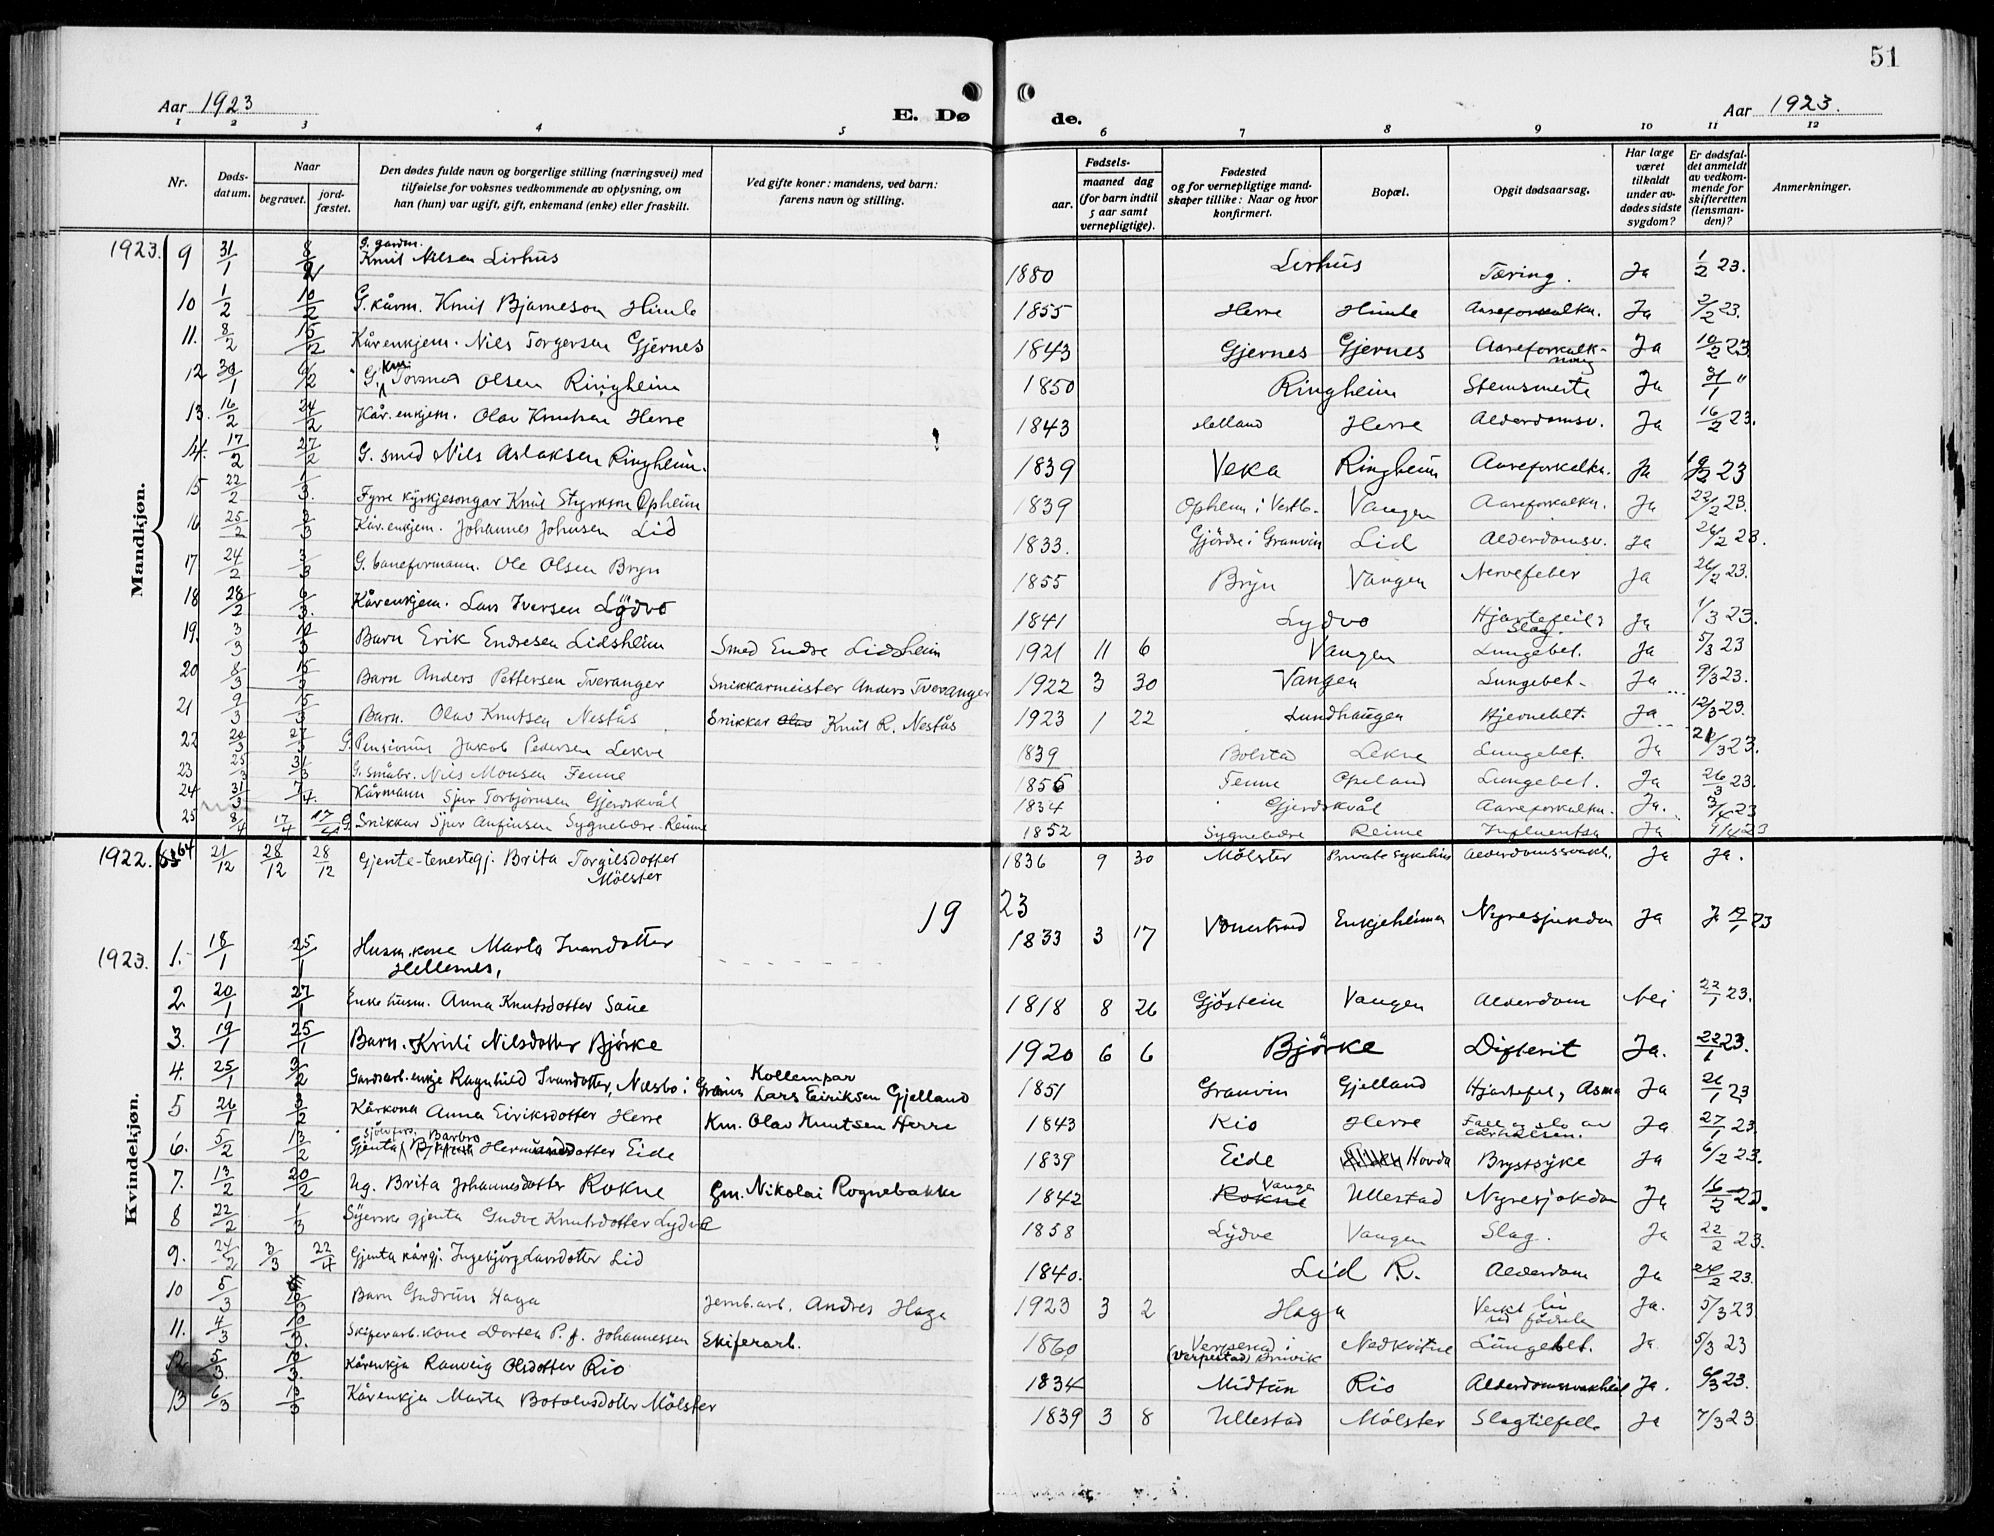 51
Aar 1923
E. Dø
de.
Aar 1923.
1 2 3 4 5 6 7 8 9 10 11 12
Nr.
Døds-datum.
Naar
begravet.
jord-fæstet.
Den dødes fulde navn og borgerlige stilling (næringsvei) med
tilføielse for voksnes vedkommende av oplysning, om
han (hun) var ugift, gift, enkemand (enke) eller fraskilt.
Ved gifte koner: mandens, ved barn:
farens navn og stilling.
Fødsels-
aar.
maaned dag
(for barn indtil
5 aar samt
vernepligtige).
Fødested
og for vernepligtige mand-
skaper tillike: Naar og hvor
konfirmert.
Bopæl.
Opgit dødsaarsag.
Har læge
været
tilkaldt
under av-
dødes sidste
sygdom?
Er dødsfal-
det anmeldt
av vedkom-
mende for
skifteretten
(lensman-
den)?
Anmerkninger.
Mandkjøn.
1923. 9 31/1 8/2 G. gardm. Knut Nilsen Lirhus 1880 Lirhus Tæring. Ja 1/2 23.
10 1/2 10/2 G. kårm. Knut Bjarneson Himle 1855 Herre Himle Aareforkalkn. Ja 2/2 23.
11. 8/2 15/2 Kårenkjem. Nils Torgersen Gjernes 1843 Gjernes Gjernes Aareforkalk-ning Ja 10/2 23
12 30/1 6/2 G. Olsen Ringheim 1850 Ringheim Ja 31/1 "
13. 16/2 24/2 Kår.enkjem. Olav Knutsen Herre 1843 Helland Herre Alderdomsv. Ja 16/2 23.
14. 17/2 27/2 G. smed Nils Aslaksen Ringheim. 1839 Veka Ringheim Aareforkalkn. Ja 19/2 23
15 22/2 1/3. Fyrre kyrkjesongar Knut Styrkson Opheim 1839 Opheim i Vestb. Vangen Aareforkalkn. Ja 22/2 23.
16 25/2 2/3 Kår.enkjem. Johannes Johnsen Lid 1833. Gjördre i Granvin Lid Alderdomsv. Ja 26/2 23.
17 24/2 3/3 G. baneformann. Ole Olsen Bryn 1855 Bryn Vangen Nervefeber Ja 26/2 23.
18 28/2 6/3. Kårenkjem. Lars Iversen Lydvo 1841 Lydvo Hjartefeil, Slag. Ja 1/3 23.
19. 3/3 10/3 Barn Erik Endresen Lidsheim Smed Endre Lidsheim 1921 11 6 Vangen Lungebet. Ja 5/3 23
20 8/3 15/3 Barn Anders Pettersen Tveranger Snikkarmeister Anders Tveranger 1922 3 30 Vangen Lungebet. Ja 9/3 23.
21 9/3 15/3 Barn. Olav Knutsen Nestås Snikkar Olav Knut R. Nestås 1923 1 22 Lundhaugen Hjernebet. Ja 12/3 23.
22 20/3 27/3 G. Pensionist Jakob Pedersen Lekve 1839 Bolstad Lekve Lungebet. Ja 21/3 23.
23 25/3 31/3 G. småbr. Nils Monsen Fenne 1856 Fenne Opeland Lungebet. Ja 26/3 23.
24 31/3 7/4. Kårmann Sjur Torbjörnsen Gjerdskvål 1834 Gjerdskvål Aareforkalkn. Ja. 3/4 23
25 8/4 17/4 17/4 G. Snikkar Sjur Anfinsen Sygnebere-Reime 1852 Sygnebere Reime Influentsa Ja 9/4 23
1922. 64 21/12 28/12 28/12 Gjente-tenestegj. Brita Torgilsdotter Mölster 1836 9 30 Mölster Private sykehus Alderdomssvakh. Ja Ja.
1923
Kvindekjøn.
1923. 1. 18/1 25/1 Husm.kone Marta Ivarsdotter Hellernes, 1833 3 17 Enkjeheimen Nyresjukdom Ja 19/1 23
2. 20/1 27/1 Enke husm. Anna Knutsdotter Saue 1818 8 26 Gjöstein Vangen Alderdom Nei 22/1 23.
3. 19/1 25/1 Barn. Kristi Nilsdotter Björke 1920 6 6 Björke Difterit Ja. 22/1 23.
4. 25/1 3/2 Gardsarb.enkje Ragnhild Ivarsdotter, Næsbø i Granvin Kollempar Lars Eiriksen Gjelland 1851 Granvin Gjelland Hjartefel, Asma Ja 26/1 23
5 26/1 3/2 Kårkona Anna Eiriksdotter Herre Km. Olav Knutsen Herre 1843 Rio Herre Fall og slo av lårhalsen. Ja 27/1 23.
6. 5/2 13/2 Gjenta Barbro Hermundsdotter Eide 1839 Eide Hovda Brystsyke Ja 6/2 23.
7. 13/2 20/2 Ug. Brita Johannesdotter Rokne Gm. Nikolai Rognebakke 1842 Rokne Vangen Ullestad Nyresjokdom Ja 16/2 23.
8 22/2 1/3 Syerske gjenta Gudve Knutsdotter Lydve 1858 Lydve Vangen Slag. Ja 22/2 23.
9. 24/2 3/3 22/4 Gjenta kårgj. Ingebjörg Larsdotter Lid 1840. Lid R. Alderdom Ja 26/2 23.
10 5/3 10/3 Barn Gudrun Haga Jernb.arb. Andres Haga 1923 3 2 Haga Veikt liv ved födsela Ja. 5/3 23
11. 4/3 10/3. Skiferarb.kone Dortea P. f. Johannessen Skiferarb. 1860 (Verpestad) Bruvik Nedkvitne Lungebet. Ja. 5/3 23
12. 5/3. 13/3. Kårenkja Ranveig Olsdotter Rio 1834 Midtun Rio Alderdomssvakheit Ja. 6/3 23.
13 6/3 13/3 Kårenkja Marta Botolvsdotter Mölster 1839 3 8 Ullestad Mölster Slagtilfelle Ja 7/3 23